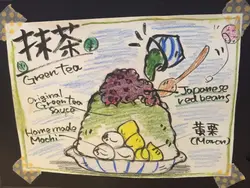 抹茶
Green tea
Original
Green tea
sauce
Home made
Mochi
Japanese
red beans
黄栗
(Maron)